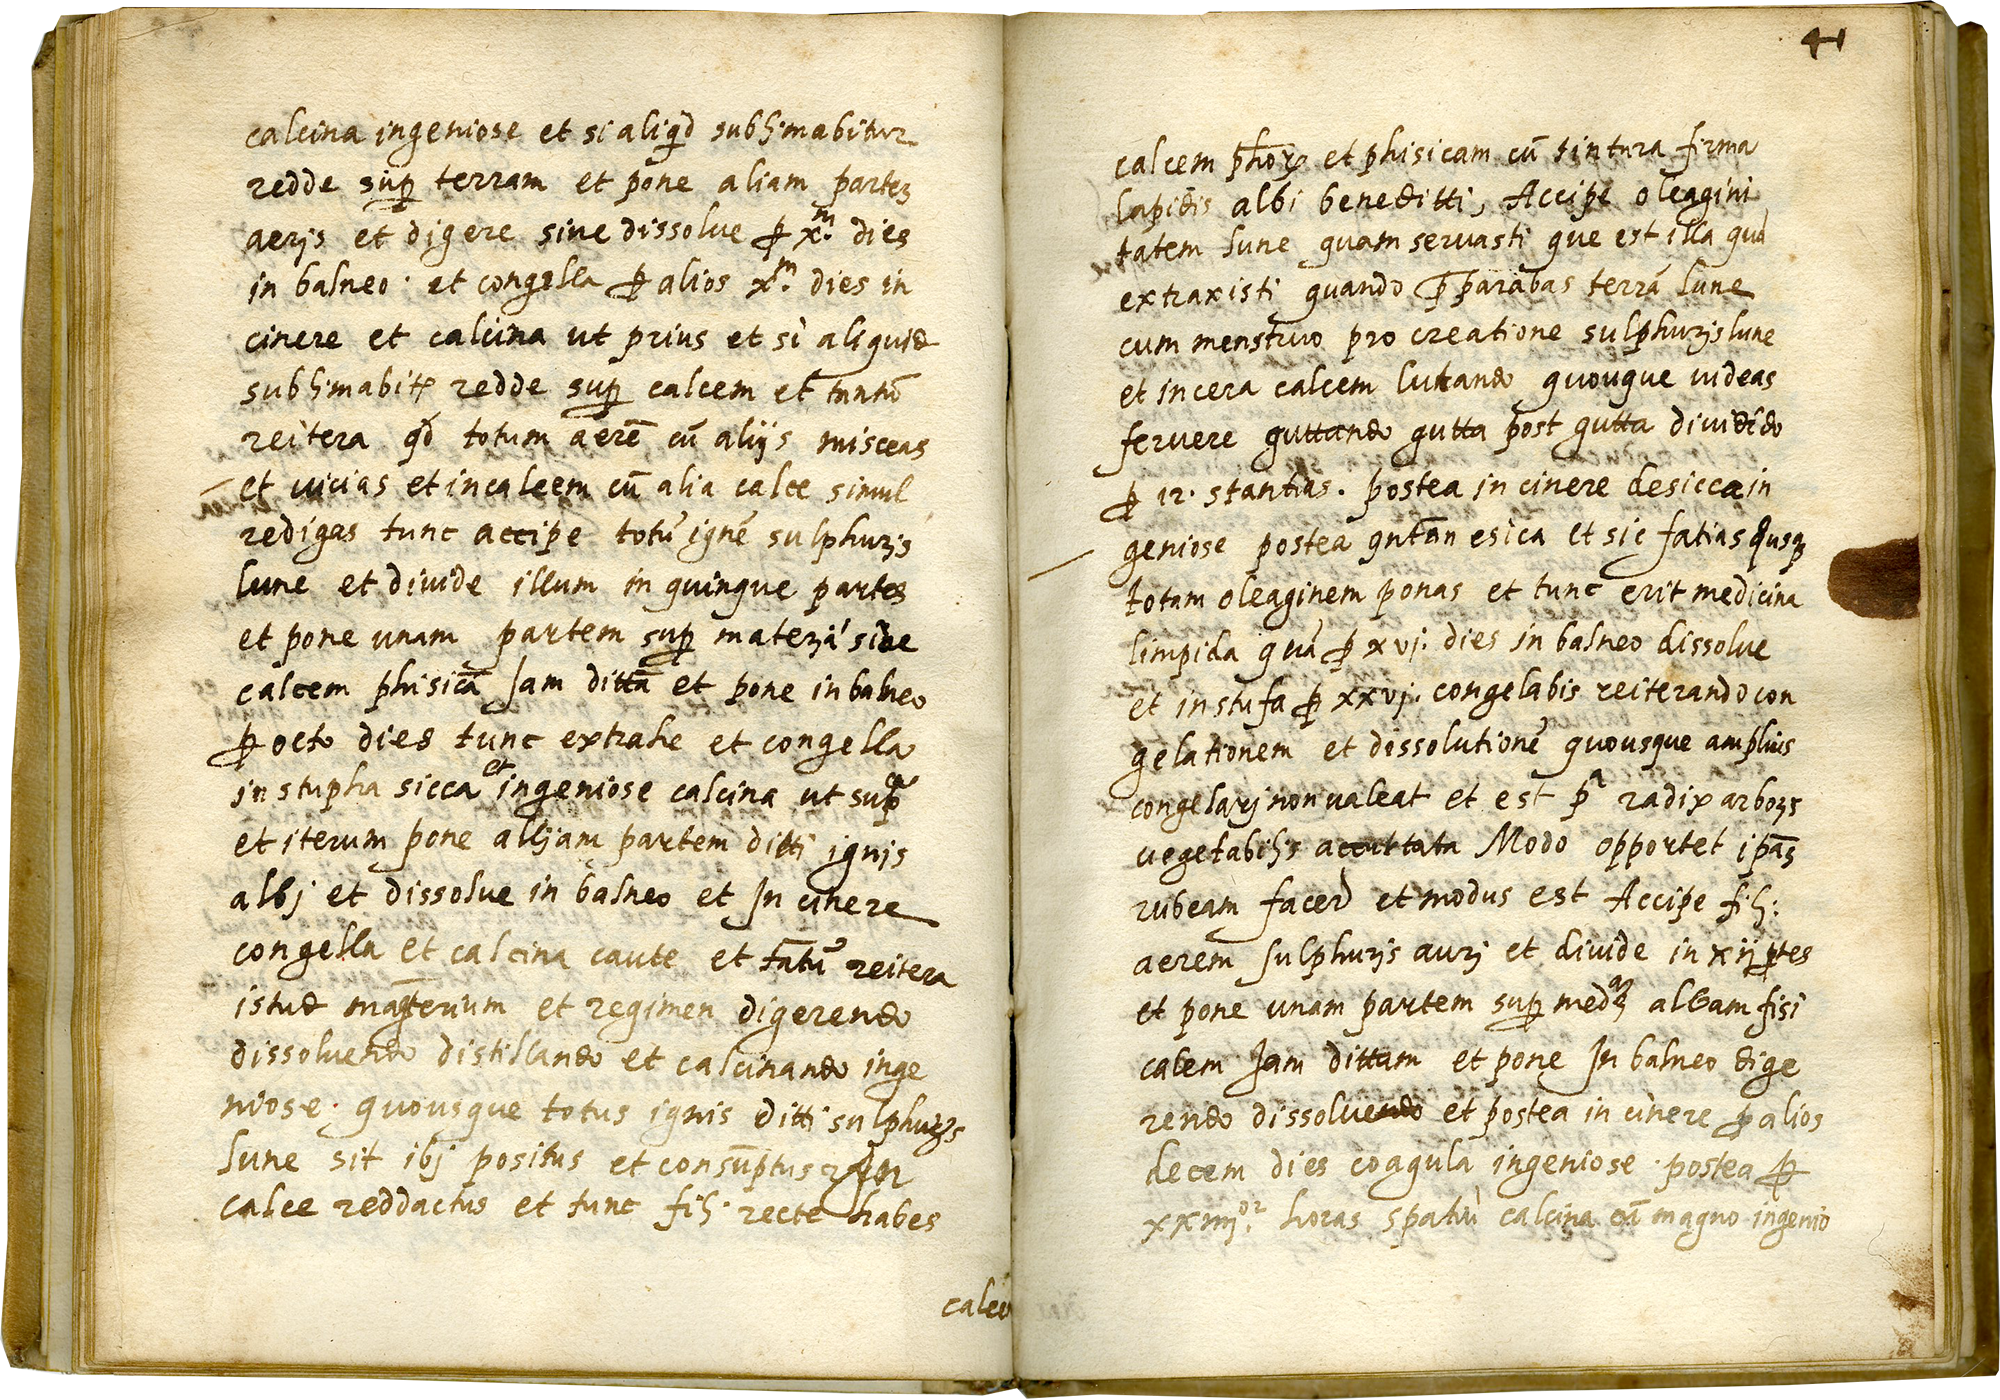 calcina ingeniose et si aliqd sublimabitur
redde sup terram et pone aliam partez
aeris et digere sine dissolue p x.m dies
in balneo · et congella p alios x.m dies in
cinere et calcina ut prius et si aliquid
sublimabitr redde sup calcem et tantũ
reitera qd totum aerẽ cũ aliis misceas
et incalcem cũ alia calce simul
redigas tunc accipe totũ ignẽ sulphuris
lune et diuide illum in quinque partes
et pone unam partem sup materiã siue
calcem phisicã Jam dittã et pone in balneo
p octo dies tunc extrahe et congella
in stupha sicca et ingeniose calcina ut supa
et iterum pone alijam partem ditti ignis
albj et dissolue in balneo et Jn cinere
congella et calcina caute et tãtũ reitera
istud magterium et regimen digerendo
dissoluendo distillando et calcinando inge
niose · quousque totus ignis ditti sulphuris
lune sit ibj positus et consũptus Jn
calce reddactus et tunc fili · recte habes
calce
41
calcem phor et phisicam cũ tintura firma
lapidis albi beneditti, Accipe oleagini
tatem lune quam seruasti que est illa quã
extraxisti quando pparabas terrã lune
cum menstruo pro creatione sulphuris lune
et incera calcem lutando quouque uideas
feruere guttando gutta post gutta diuidẽdo
p 12 · stantias · postea in cinere desicca in
geniose postea esica et sic fatias qusq
totam oleaginem ponas et tunc erit medicina
limpida quã p xvj · dies in balneo dissolue
et in stufa p xxvj · congelabis reiterando con
gelationem et dissolutionẽ quousque amplius
congelarj non ualeat et est pa radix arboris
uegetabilis Modo opportet ipãz
rubeam facere et modus est Accipe fili:
aerem sulphuris aurj et diuide in xij ptes
et pone unam partem sup medaz albam fisi
calem Jam dittam et pone Jn balneo dige
rendo dissoluendo et postea in cinere p alios
decem dies coagula ingeniose · postea p
xxiiij.or horas calcina cũ magno ingenio